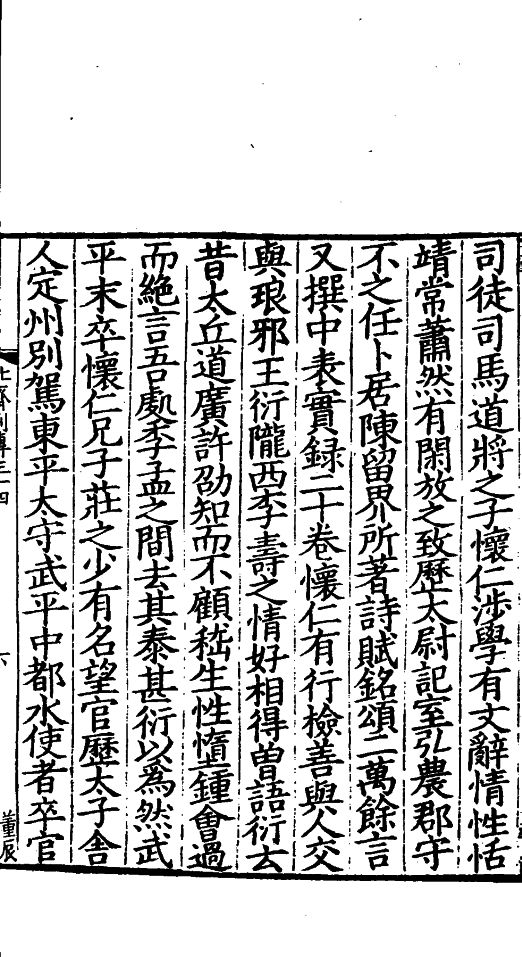 司徒司馬道將之子懷仁涉學有文辭情性恬
靖常蕭然有閑放之致歷太尉記室弘農郡守
不之任卜居陳留界所著詩賦銘頌二萬餘言
又撰中表實録二十卷懷仁有行檢善與人交
與琅邪王衍隴西李壽之情好相得曽語衍云
昔太丘道廣許劭知而不顧嵇生性惰鍾會過
而絶言吾處季孟之間去其泰甚衍以爲然武
平末卒懷仁兄子莊之少有名望官歷太子舎
人定州別駕東平太守武平中都水使者卒官
北齊列傳三十四
六
董辰